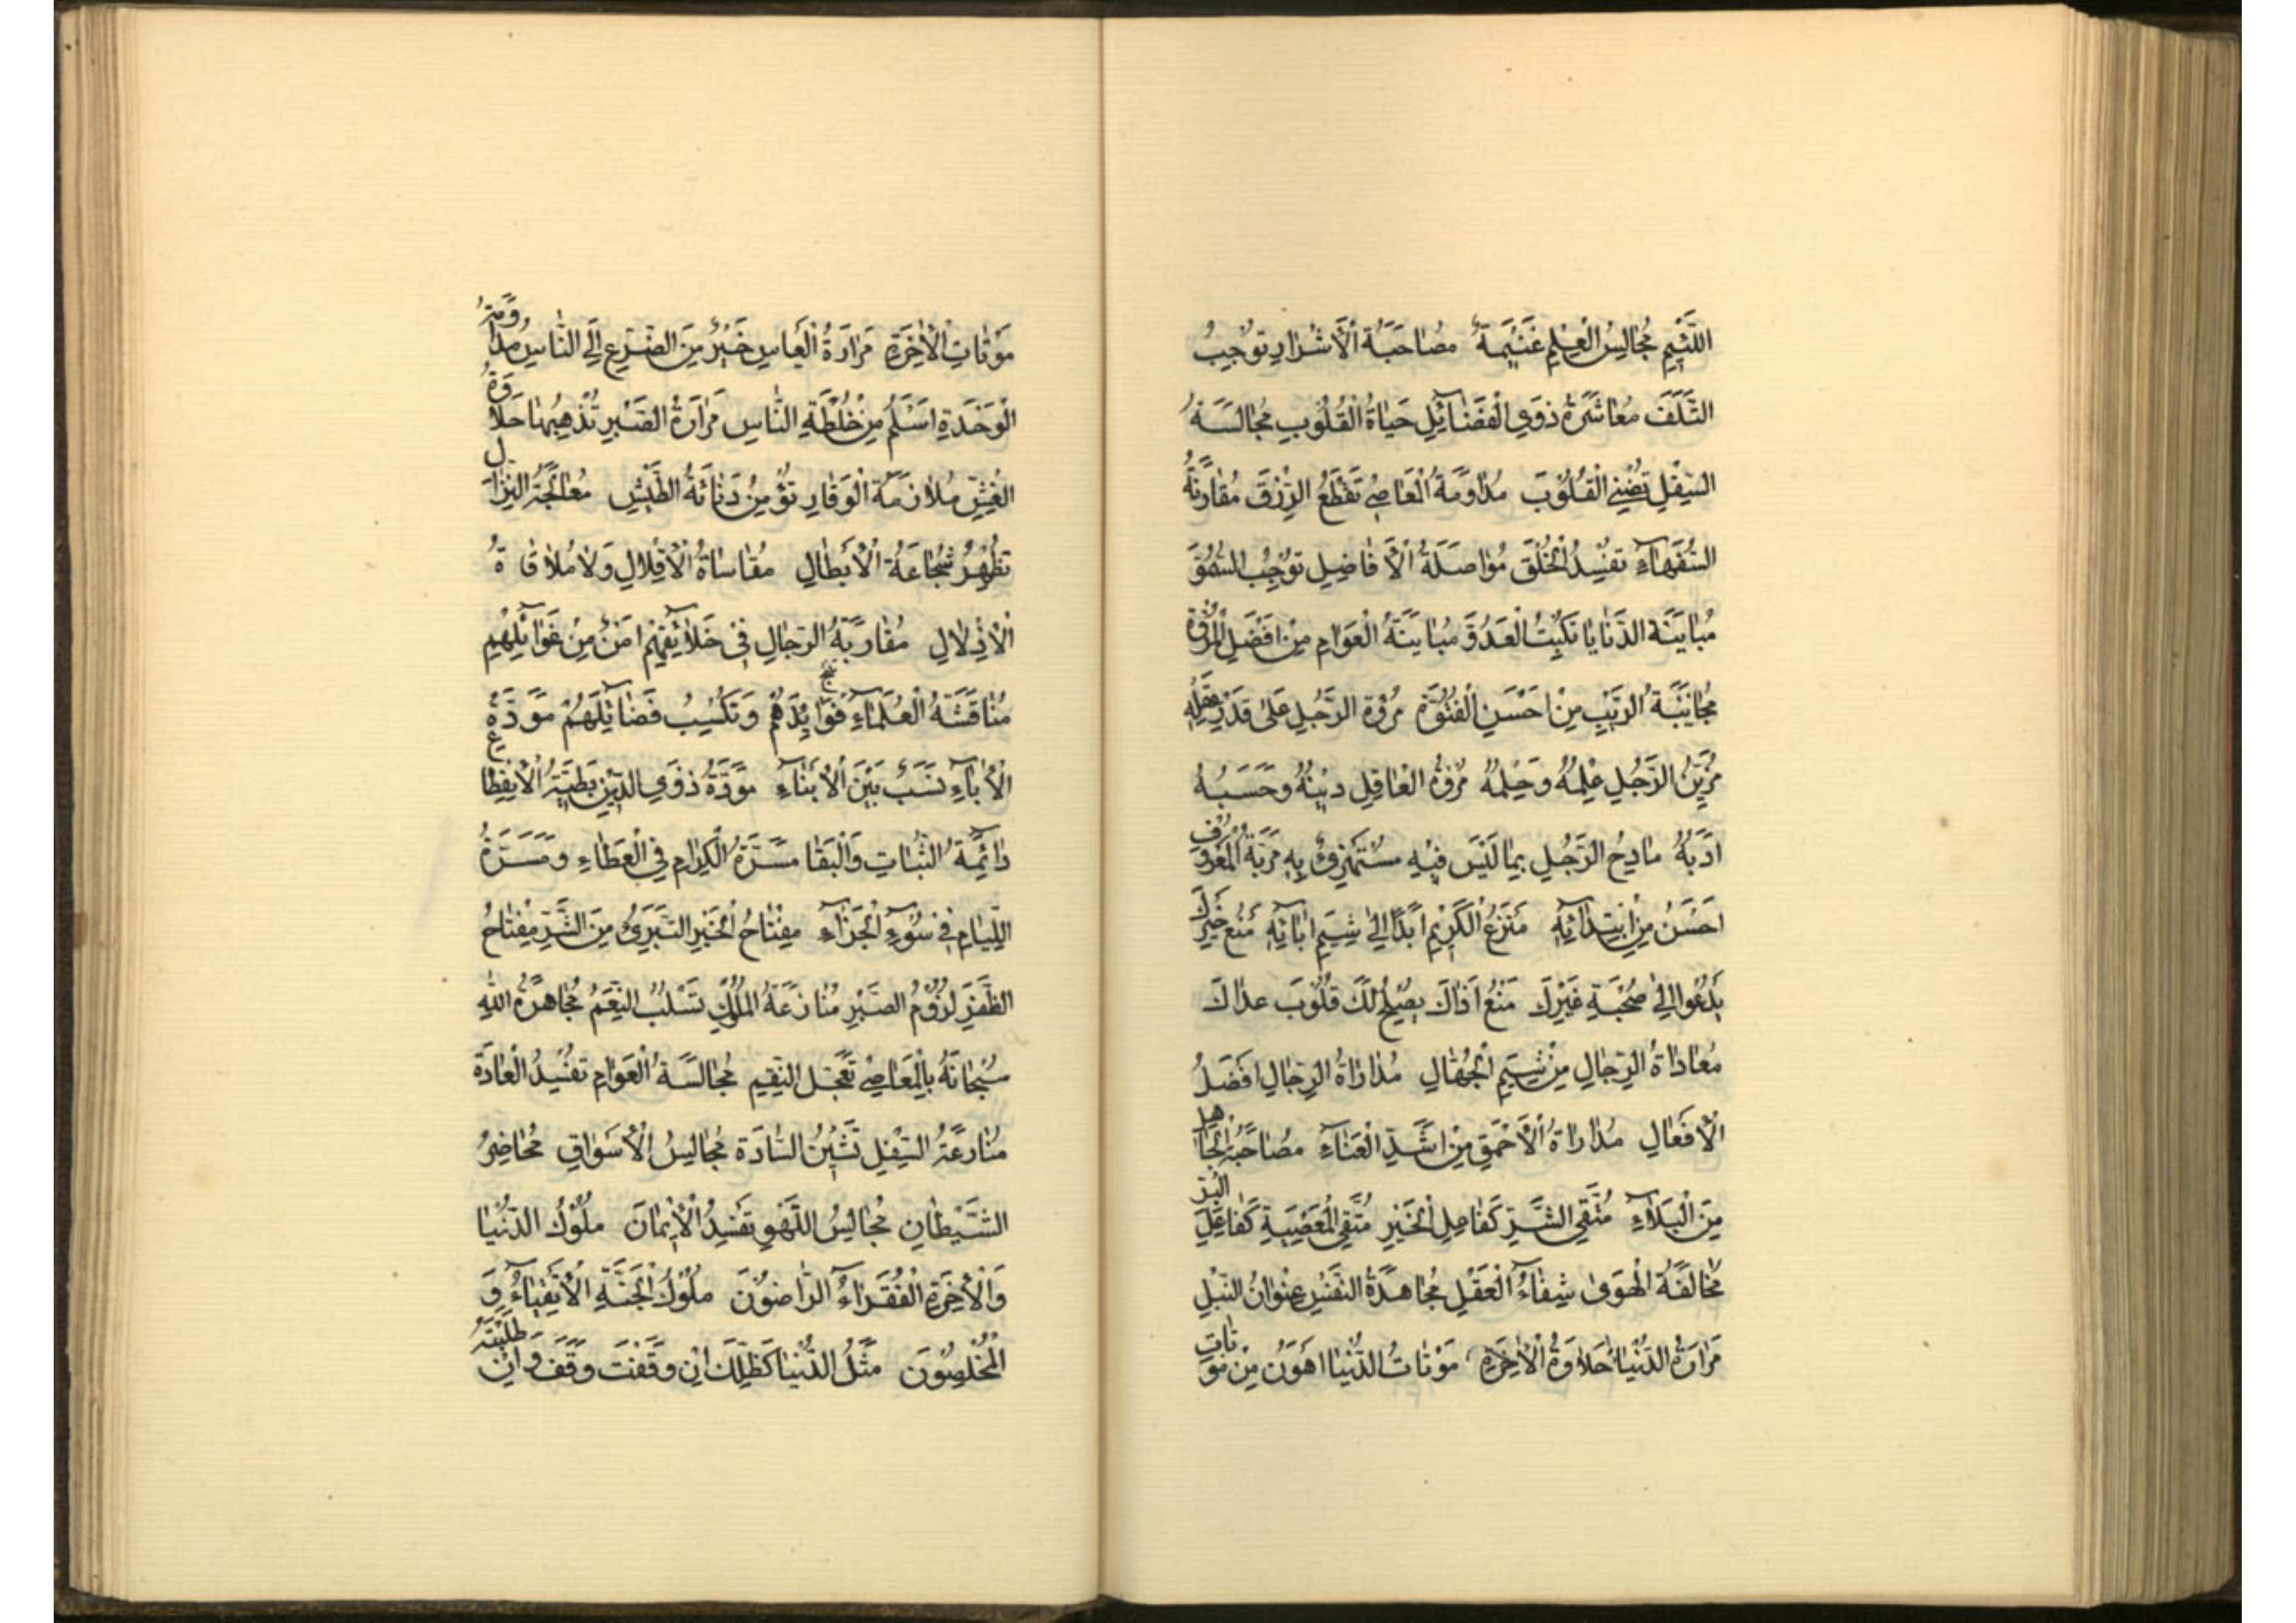 اللَّئِيمِ مُجَالِسُ الْعِلْمِ غَنِيمَةٌ مُصَاحَبَةُ الْأَشْرَارِ تُوجِبُ
التَّلَفَ مُعَاشَرَةُ ذَوِي الْفَضَائِلِ حَيَاةُ الْقُلُوبِ مُجَالَسَةُ
السِّفَلِ تُضْنِي الْقُلُوبَ مُدَاوَمَةُ الْمَعَاصِي تَقْطَعُ الرِّزْقَ مُقَارَنَةُ
السُّفَهَاءِ تُفْسِدُ الْخُلُقَ مُوَاصَلَةُ الْأَفَاضِلِ تُوجِبُ السُّمُوَّ
مُبَايَنَةُ الدَّنَايَا تَكْبِتُ الْعَدُوَّ مُبَايَنَةُ الْعَوَامِ مِنْ أَفْضَلِ الْمُرُوَّةِ
مُجَانَبَةُ الرَّيْبِ مِنْ أَحْسَنِ الْفُتُوَّةِ مُرُوَّةُ الرَّجُلِ عَلَى قَدْرِ عَقْلِهِ
مُزَيِّنُ الرَّجُلِ عِلْمُهُ وَحِلْمُهُ مُرُوَّةُ الْعَاقِلِ دِينُهُ وَحَسَبُهُ
أَدَبُهُ مَادِحُ الرَّجُلِ بِمَا لَيْسَ فِيهِ مُسْتَهْزِئٌ بِهِ مَرَبَّةُ الْمَعْرُوفِ
أَحْسَنُ مِنْ ابْتِدَائِهِ مَنْزَعُ الْكَرِيمِ أَبَدًا إِلَى شِيَمِ آبَائِهِ مَنْعُ خَيْرِكَ
يَدْعُوا إِلَى صُحْبَةِ غَيْرِكَ مَنْعُ أَذَاكَ يُصْلِحُ لَكَ قُلُوبَ عداكَ
مُعَادَاةُ الرِّجَالِ مِنْ شِيَمِ الْجُهَّالِ مُدَارَاةُ الرِّجَالِ أَفْضَلُ
الْأَفْعَالِ مُدَارَاةُ الْأَحْمَقِ مِنْ أَشَدِّ الْعَنَاءِ مُصَاحَبَةُ الْجَاهِلِ
مِنَ الْبَلَاءِ مُتَّقِي الشَّرِّ كَفَاعِلِ الْخَيْرِ مُتَّقِي الْمَعْصِيَةِ كَفَاعِلِ الْبِرِّ
مُخَالَفَةُ الْهَوَى شِفَاءُ الْعَقْلِ مُجَاهَدَةُ النَّفْسِ عِنْوَانُ النُّبْلِ
مَرَارَةُ الدُّنْيَا حَلَاوَةُ الْآخِرَةِ مَوْتَاتُ الدُّنْيَا أَهْوَنُ مِنْ مَوْتَاتِ
مَوْتَاتِ الْآخِرَةِ مَرَارَةُ الْيَأْسِ خَيْرٌ مِنَ التَّضَرُّعِ إِلَى النَّاسِ مُدَاوَمَةُ
الْوَحْدَةِ أَسْلَمُ مِنْ خُلْطَةِ النَّاسِ مَرَارَةُ الصَّبْرِ تُذْهِبُهَا حَلَاوَةُ
مُلَازَمَةُ الْوَقَارِ تُؤْمِنُ دَنَائَةُ الطَّيْشِ مُعَالَجَةُ النِّزَالِ
تُظْهِرُ شُجَاعَةَ الْأَبْطَالِ مُقَاسَاةُ الْأَقْلَالِ وَلَا مُلَاقَاةُ
الْأَذْلَالِ مُقَارَبَةُ الرِّجَالِ فِي خَلَائِقِهِمْ أَمْنٌ مِنْ غَوَائِلِهِمْ
مُنَاقَشَةُ الْعُلَمَاءِ فَوَائِدَهُمْ وَتَكْسِبُ فَضَائِلَهُمْ مَوَدَّةُ
الْآبَاءِ نَسَبٌ بَيْنَ الْأَبْنَاءِ مَوَدَّةُ ذَوِي الدِّينِ بَطِيئَةُ الْإِنْقِطَاعِ
دَائِمَةُ الثَّبَاتِ وَالْبَقَا مَسَرَّةُ الْكِرَامِ فِي الْعَطَاءِ وَمَسَرَّةُ
اللِّيَامِ فِي سُوءِ الْجَزَاءِ مِفْتَاحُ الْخَيْرِ التَّبَرِّي مِنَ الشَّرِّ مِفْتَاحُ
الظَّفَرِ لُزُومُ الصَّبْرِ مُنَازَعَةُ الْمُلُوكِ تَسْلُبُ النِّعَمَ مُجَاهَرَةُ اللَّهِ
سُبْحَانَهُ بِالْمَعَاصِي تُعَجِّلُ النِّقَمِ مُجَالَسَةُ الْعَوَامِ تُفْسِدُ الْعَادَةَ
مُنَازَعَةُ السِّفَلِ تَشِينُ السَّادَةَ مُجَالِسُ الْأَسْوَاقِ مَحَاضِرُ
الشَّيْطَانِ مُجَالِسُ اللَّهْوِ تُفْسِدُ الْإِيمَانَ مُلُوكُ الدُّنْيَا
وَالْآخِرَةِ الْفُقَرَاءُ الرَّاضُونَ مُلُوكُ الْجَنَّةِ الْأَتْقِيَاءُ وَ
الْمُخْلِصُونَ مَثَلُ الدُّنْيَا كَظِلِّكَ إِنْ وَقَفْتَ وَقَفَ وَإِنْ طَلَبْتَهُ